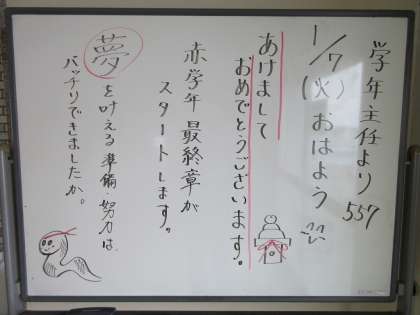 学年主任より 557
1/7(火) おはよう
あけまして
おめでとうございます。
赤学年 最終章が
スタートします。
夢を叶える準備・努力は、
バッチリできましたか。